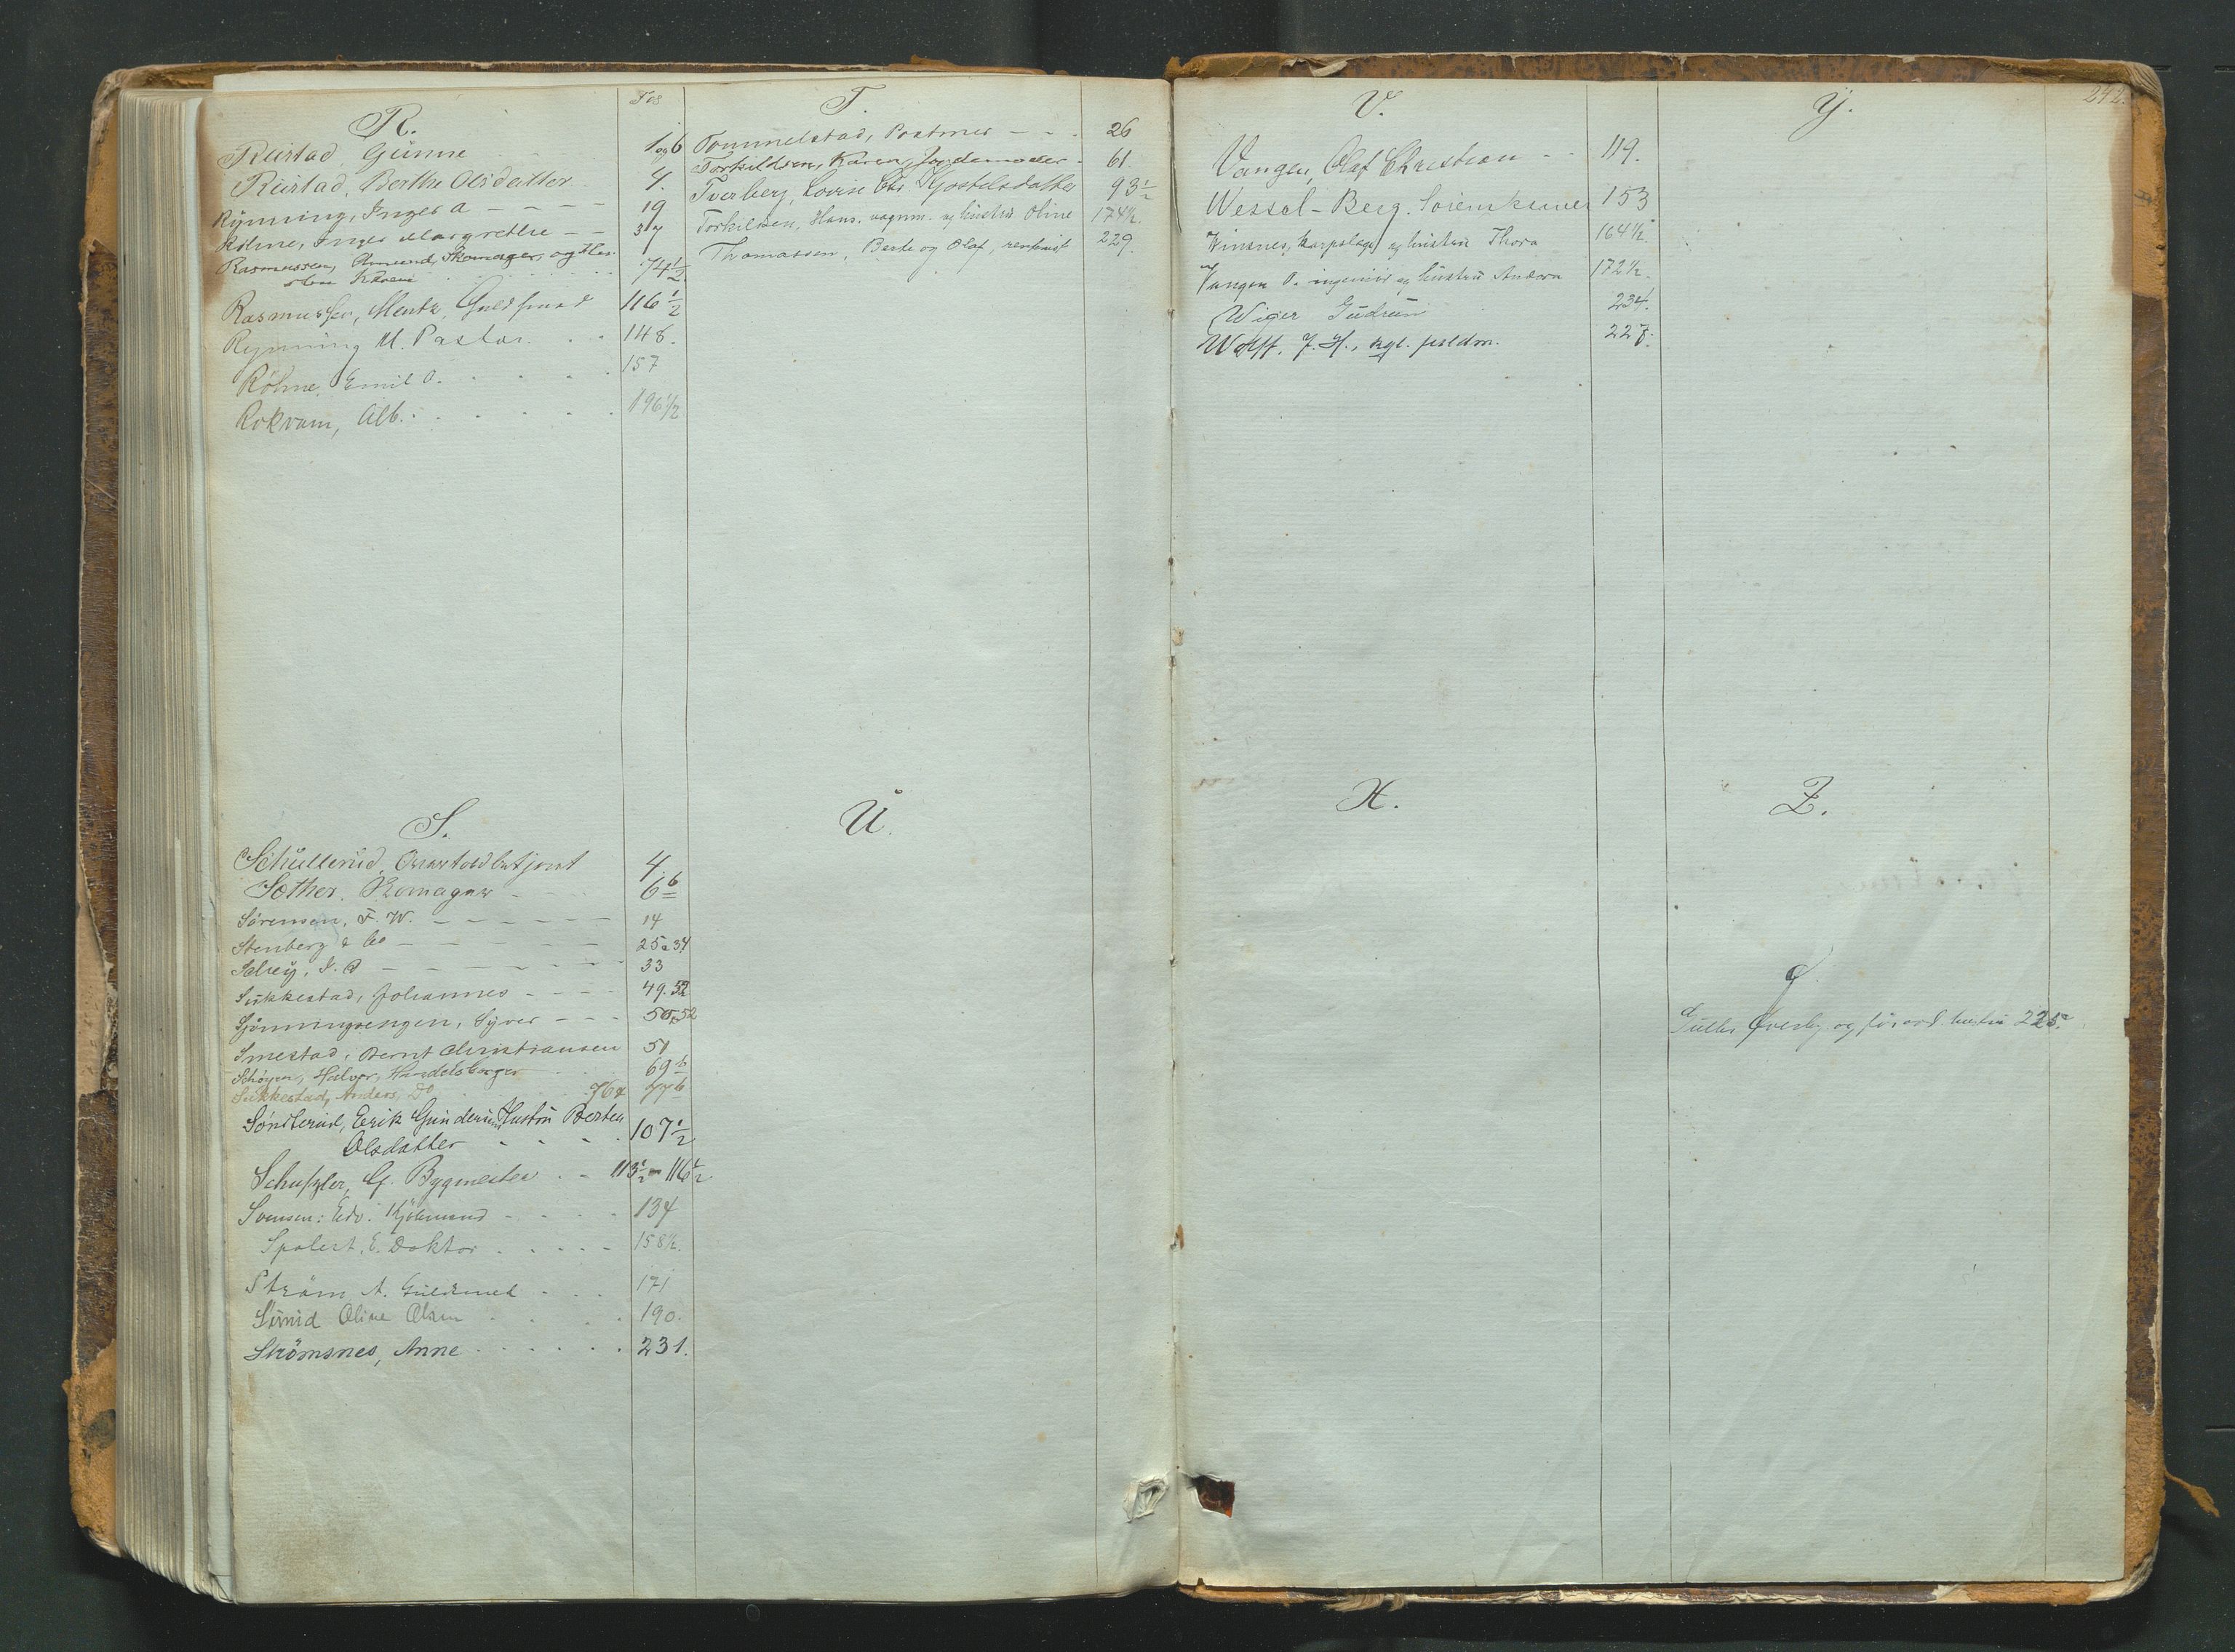 R.
Fol
Rustad, Gunne 1 og 6
Rustad, Berthe Olsdatter 4.
Rynning, Inger A 19
Röhne, Inger Margrethe 37
Rasmussen, Amund, Skomager, og
Karen 74 1/2
Rasmussen, Mentz, Guldsmed 116 1/2
Rynning M. Pastor 148.
Röhne, Emil O. 157
Rokvam, Alb. 196 1/2
S.
Schullerud, Overtoldbetjent 4
Sæther, Skomager 6 b
Sørensen, F. W. 14
Stenberg & Co 25 a 34
33
Sukkestad, Johannes 49. 52
Gjönningsengen, Syver 50, 52
Smestad, Bernt Christiansen 51
Schøyen, Halvor, Handelsborger 69 b
Sukkestad, Anders, Do 76 77 b
Sönsterud, Eerik Gundersen, Hustru Berthe
Olsdatter 107 1/2
Schüszler, G. Bygmester 113 1/2 - 116 1/2
Svensen: Edv. Kjöbmand 134
E. Doktor 158 1/2.
Ström A. Guldsmed 171
Oline Olsen 190.
Strömsnes, Anne 231.
T.
Tommelstad, Postmes 26
Torkildsen, Karen, Jordemoder 61.
Tverberg, Lovise Chr. Kjostelsdatter 93 1/2
Torkildsen, Hans. vognm. og hustru Oline 174 1/2.
Thomassen, Berte og Olaf, rentenist 229.
U.
V.
Vangen, Olaf Christian 119.
Wessel-Berg. Sorenskriver 153
Vinsnes, korpslæge, og hustru Thora 164 1/2.
Vangen P. ingeniør og hustru Andora 172 1/2.
Wiger Gudrun 234.
Wolff. J. H., kgl. fuldm. 227.
X.
Y.
242.
Z.
Ø.
Øverby og hustru 225.